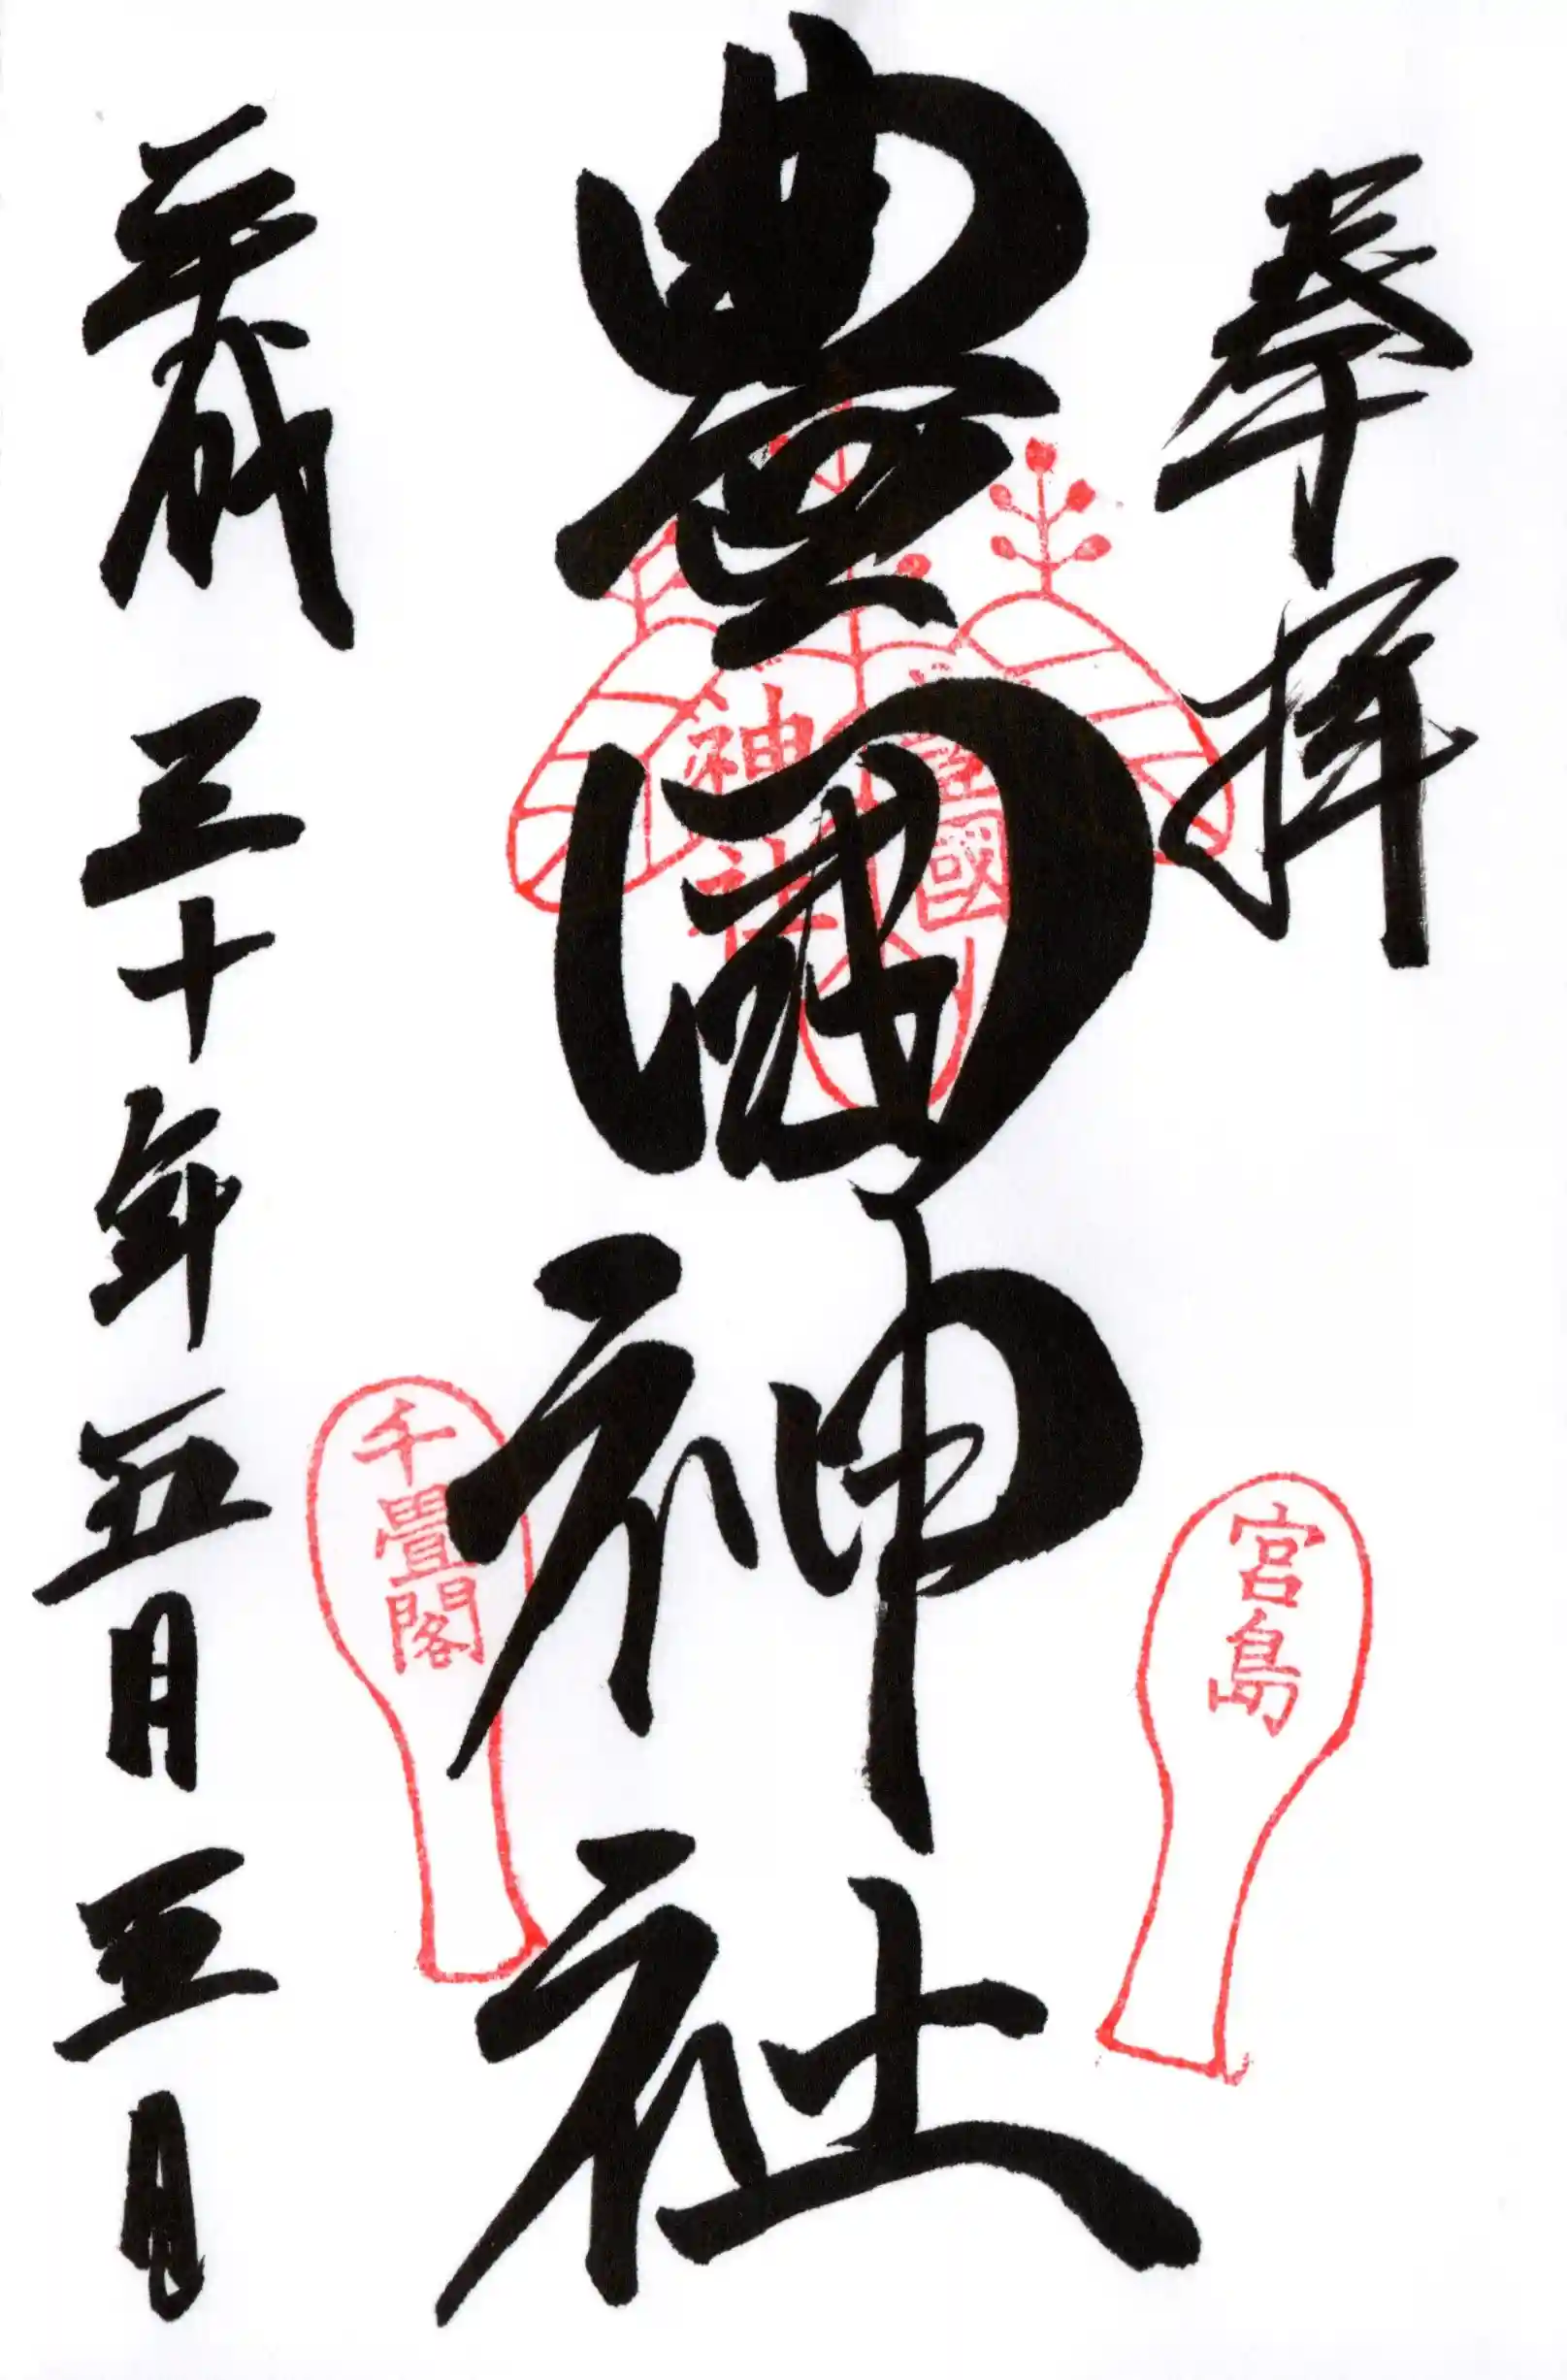 奉拝
宮島
豊國神社
豊國
神社
千畳閣
平成三十年五月三日